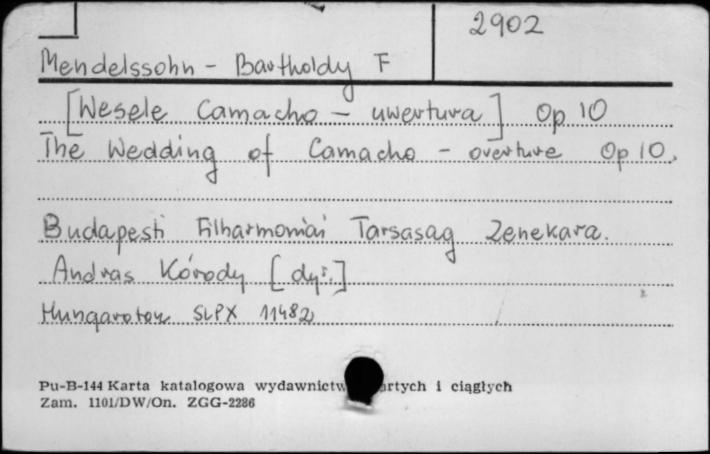 2902
Mendelssohn - Bartholdy F
[Wesele Camacho - uwertura] Op 10
The Wedding of Camacho - overture Op 10.
Budapesti Filharmoniai Tarsasag Zenekara.
Andras Kórody [dyr.]
Hungaroton SLPX 11482
Pu-B-144 Karta katalogowa wydawnictw artych i ciągłych
Zam. 1101/DW/On. ZGG-2286